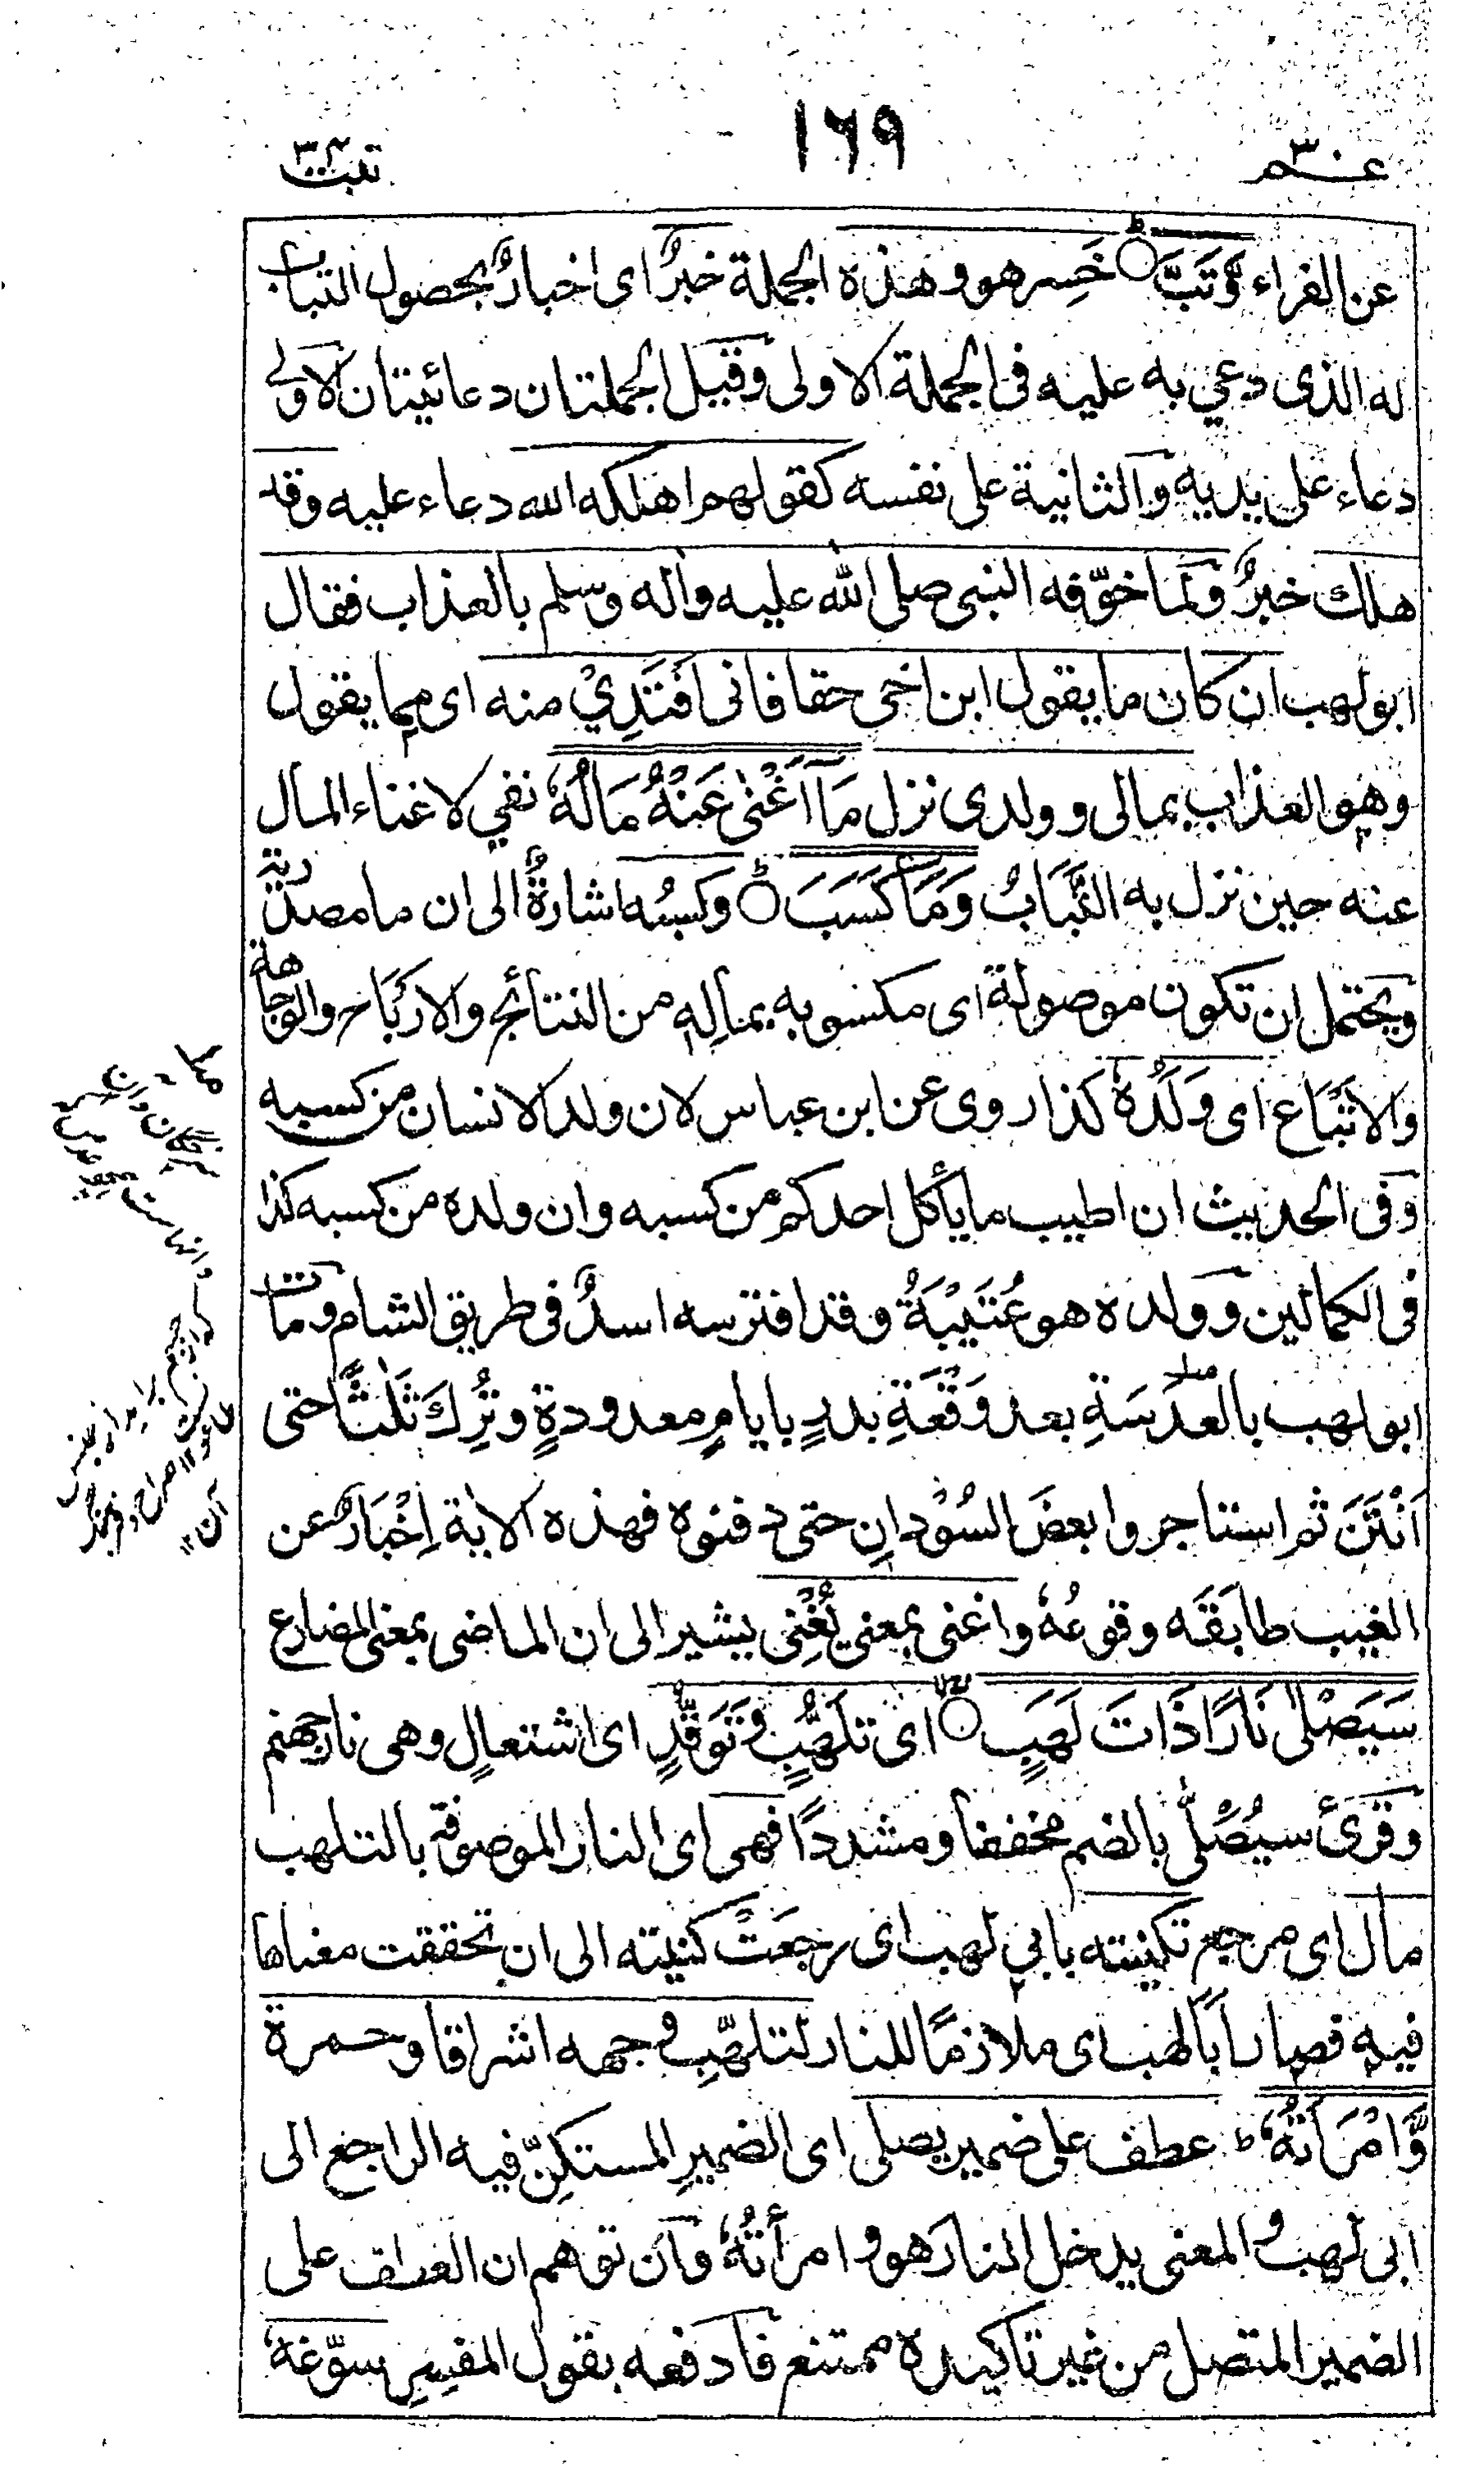 عـــم ٣٠
١٦٩
تبت
عن الفراء وَّتَبَّ ۞ خَسِر هو وهذه الجملة خبرٌ اى اخبارٌ بحصول التباب
له الذى دعي به عليه فى الجملة الاولى وقيل الجملتان دعائيتان الاولى
دعاء على يديه والثانية على نفسه كقولهم اهلكه الله دعاء عليه وقد
هلك خبرٌ ولما خوّفه النبى صلى الله عليه واٰله وسلم بالعذاب فقال
ابو لهب ان كان ما يقول ابن اخى حقا فانى اَفْتَدِيْ منه اى مما يقول
وهو العذاب بمالى وولدى نزل مَآ اَغْنٰى عَنْهُ مَالُهٗ نفي لاغناء المال
عنه حين نزل به التَّبَابُ وَمَا كَسَبَ ۞ وكَسبُه اشارةٌ الى ان ما مصدرية
ويحتمل ان تكون موصولة اى مكسوبه بمالِهٖ من النتائج والارْبَاح والوجاهة
والاَتْبَاع اى وَلَدُهٗ كذا روى عن ابن عباس لان ولد الانسان من كسبه
وفى الحديث ان اطيب ما يأكل احدكم من كسبه وان ولده من كسبه كذا
فى الكمالين وولده هو عُتَيْبَةُ وقد افترسه اسدٌ فى طريق الشام ومات
ابو لهب بالعَدَسَةِ بعد وَقْعَةِ بدرٍ بايامٍ معدودةٍ وتُرِكَ ثَلٰثًا حتى
اَنْتَنَ ثم استاجروا بعضَ السُوْدانِ حتى دفنوه فهذه الاية اِخْبَارٌ عن
الغيب طابَقَه وقوعُهٗ واغنى بمعنى يُغْنِى يشير الى ان الماضى بمعنى المضارع
سَيَصْلٰى نَارًا ذَاتَ لَهَبٍ ۞ اى تلهُّبٍ وتَوَقُّدٍ اى اشتعالٍ وهى نار جهنم
وقرئ سيُصْلّٰى بالضم مخففا ومشددًا فهى اى النار الموصوفة بالتلهب
مأل اى مرجع تكنيته بابي لهب اى رجعَتْ كنيته الى ان تحققت معناها
فيه فصار اَبَا لهب اى ملازمًا للنار لتلهّبِ وجهه اشراقا وحمرة
وَّامْرَاَتُهٗ ط عطف على ضمير يصلى اى الضميرِ المستكِنّ فيه الراجع الى
ابى لهب والمعنى يدخل النار هو وامرأتُهٗ وان توهم ان العطف على
الضمير المتصل من غير تاكيده ممتنع فادفعه بقول المفسِرِ سوّغهٗ